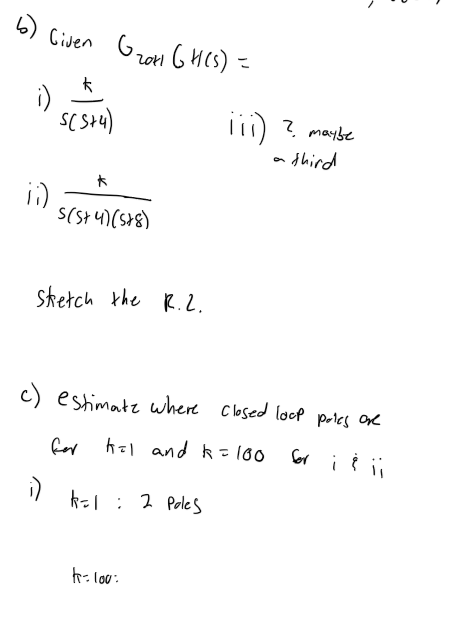 b) Given G_ZOH GH(s) =
i) k / s(s+4)
iii) ? maybe
a third
ii) k / s(s+4)(s+8)
Sketch the R.L.
c) estimate where closed loop poles are
for k=1 and k=100 for i & ii
i) k=1 : 2 Poles
k=100: